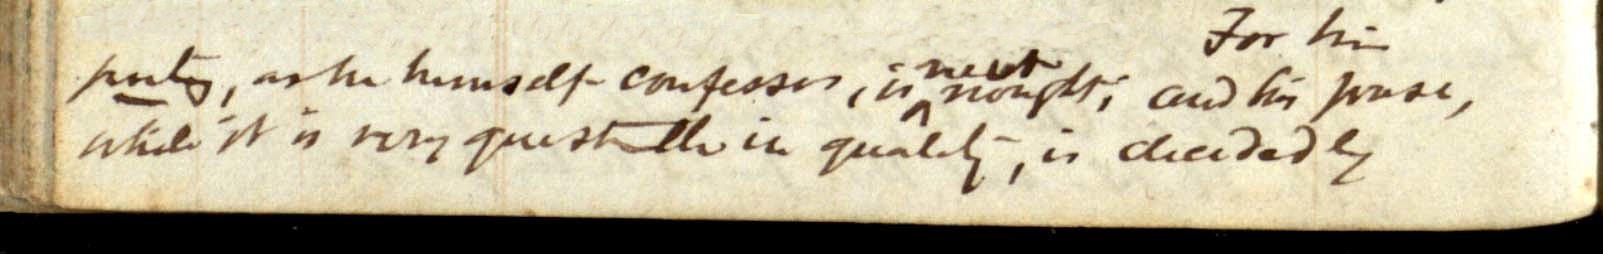 For his
poetry, as he himself confesses, is next nought; and his prose,
while it is very questionable in quality, is decidedly